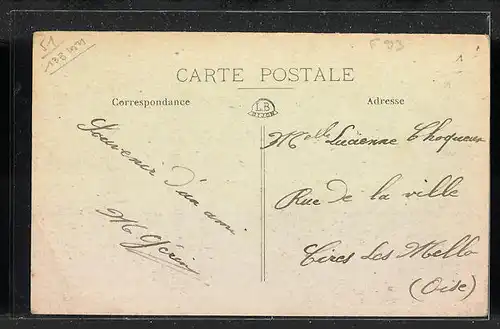 51
F 93
CARTE POSTALE
Correspondance
LB
DIJON
Adresse
Souvenir d'un ami
M
Melle Lucienne Choqueux
Rue de la ville
Cires Les Mello
(Oise)